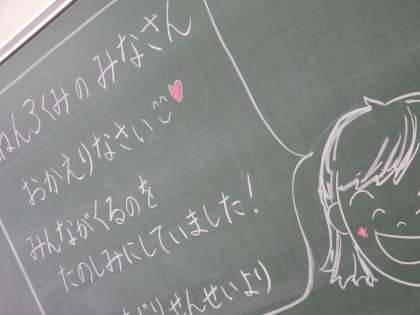 ねんろくみの みなさん
おかえりなさい
みんながくるのを
たのしみにしていました！
どりせんせいより